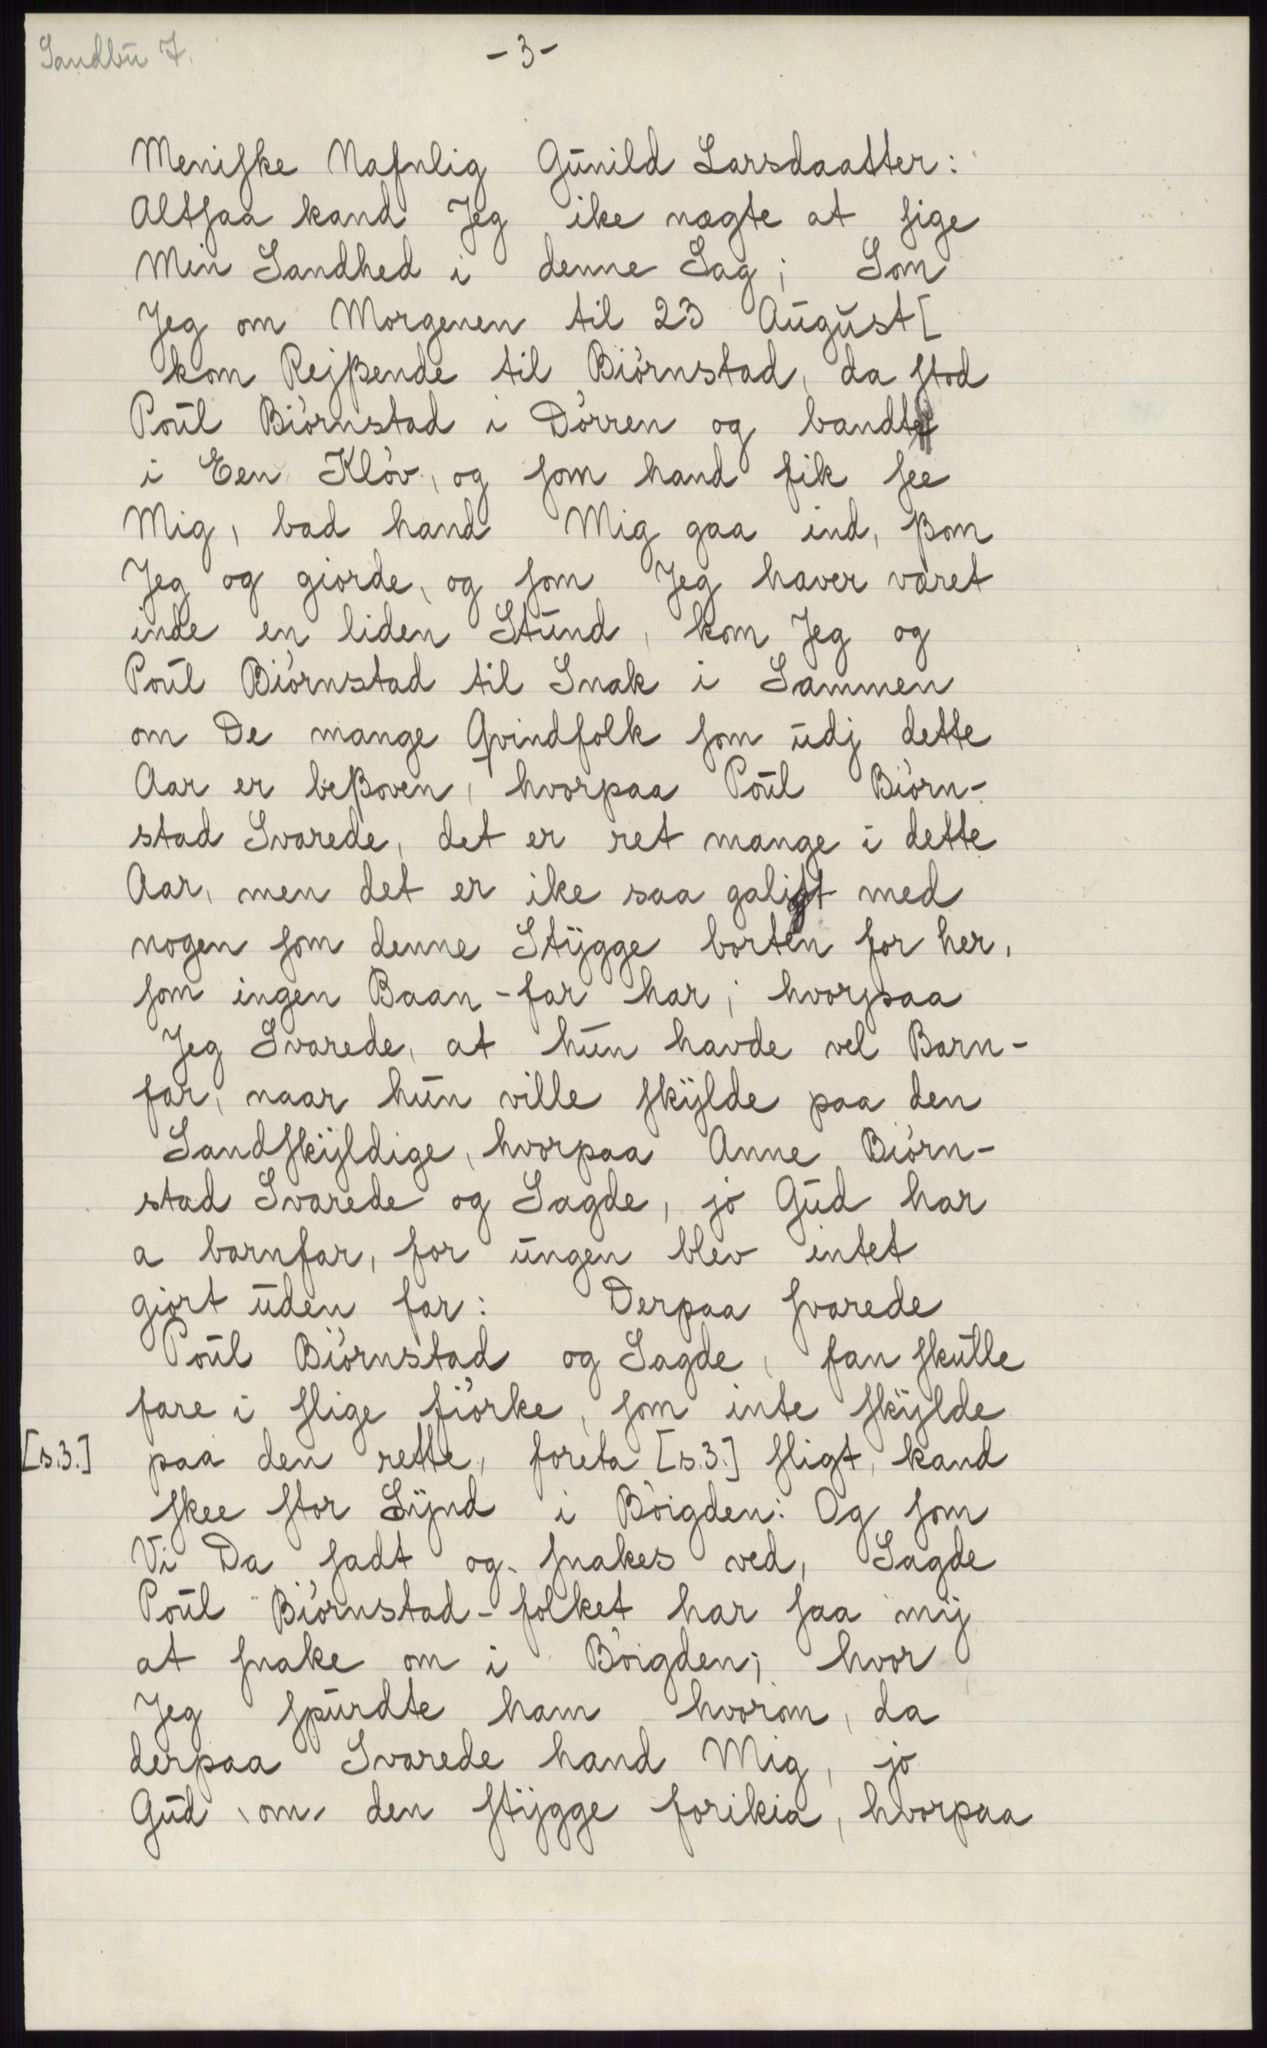 Sandbu 7.
-3-
Meniske Nafnlig Gunild Larsdaatter:
Altsaa kand Jeg ike nægte at sige
Min Sandhed i denne Sag; Som
Jeg om Morgenen til 23 August [
kom Rejßende til Biørnstad, da stod
Poul Biørnstad i Dørren og bandt
i Een Kløv, og som hand fik see
Mig, bad hand Mig gaa ind, ßom
Jeg og giorde, og som Jeg haver været
inde en liden Stund, kom Jeg og
Poul Biørnstad til Snak i Sammen
om De mange Qvindfolk som udj dette
Aar er beßoven, hvorpaa Poul Biørn-
stad Svarede, det er ret mange i dette
Aar, men det er ike saa galigt med
nogen som denne Stÿgge borten for her,
som ingen Baan-far har; hvorpaa
Jeg Svarede, at hun havde vel Barn-
far, naar hun ville skÿlde paa den
Sandskÿldige, hvorpaa Anne Biørn-
stad Svarede og Sagde, jo Gud har
a barnfar, for ungen blev intet
giort uden far: Derpaa svarede
Poul Biørnstad og Sagde, fan skulle
fare i slige fiørke, som inte skÿlde
[s.3.] paa den rette, foreta [s.3.] sligt, kand
skee stor Sÿnd i Bøigden: Og som
Vi Da sadt og snakes ved, Sagde
Poul Biørnstad-folket har saa mÿ
at snake om i Bøigden; hvor
Jeg spurdte ham hvorom, da
derpaa Svarede hand Mig, jo
Gud om den stÿgge forikia, hvorpaa